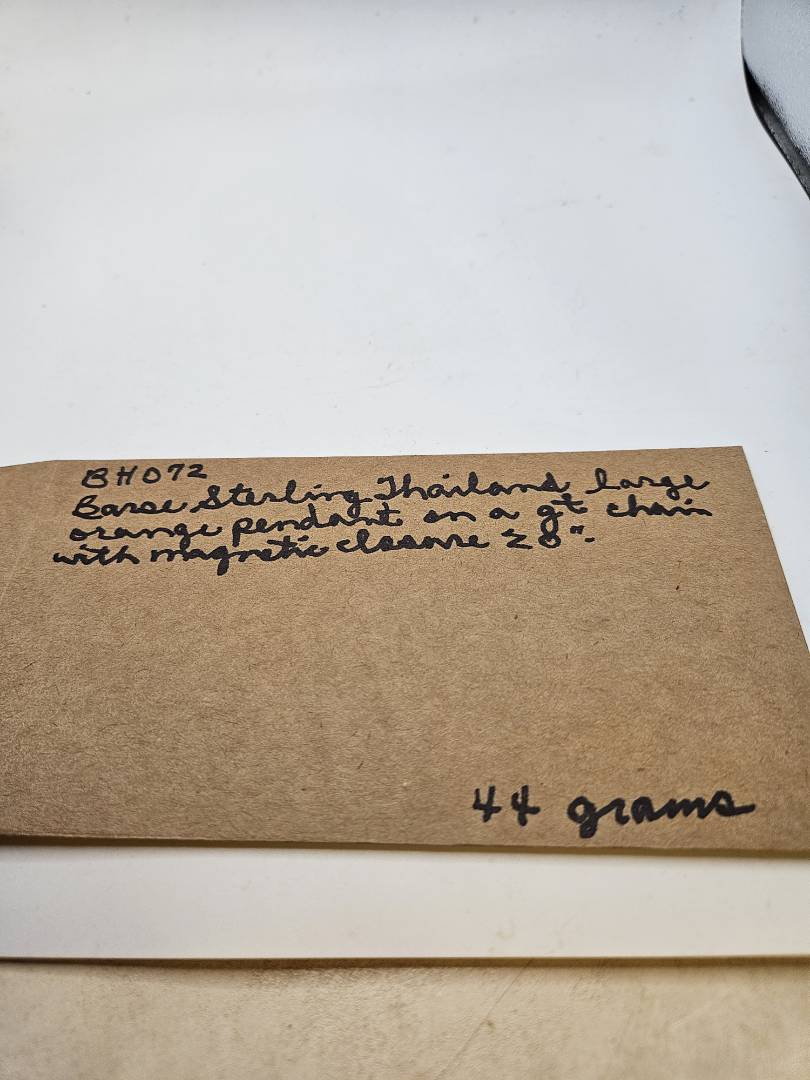 BH072
Barse Sterling Thailand large
orange pendant on a gt chain
with magnetic closure
44 grams